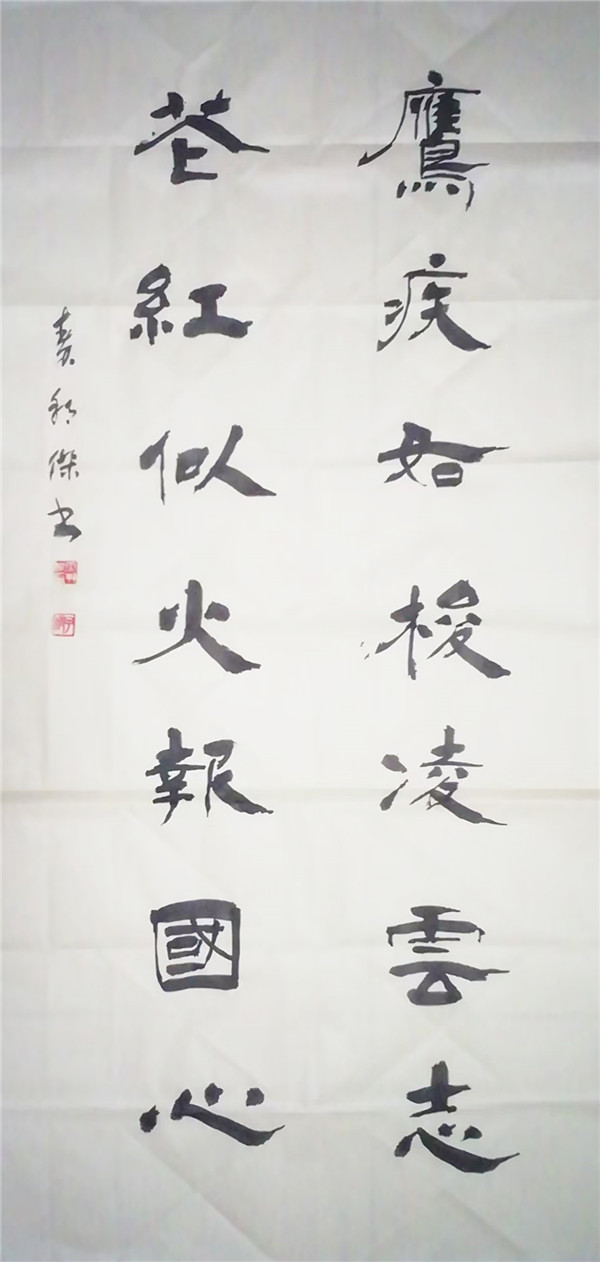 鷹疾如梭凌雲志
花紅似火報國心
傑书